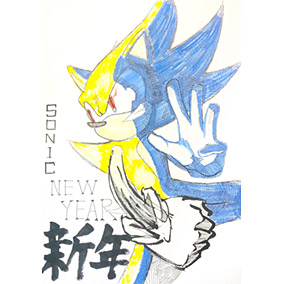 SONIC
NEW
YEAR
新年